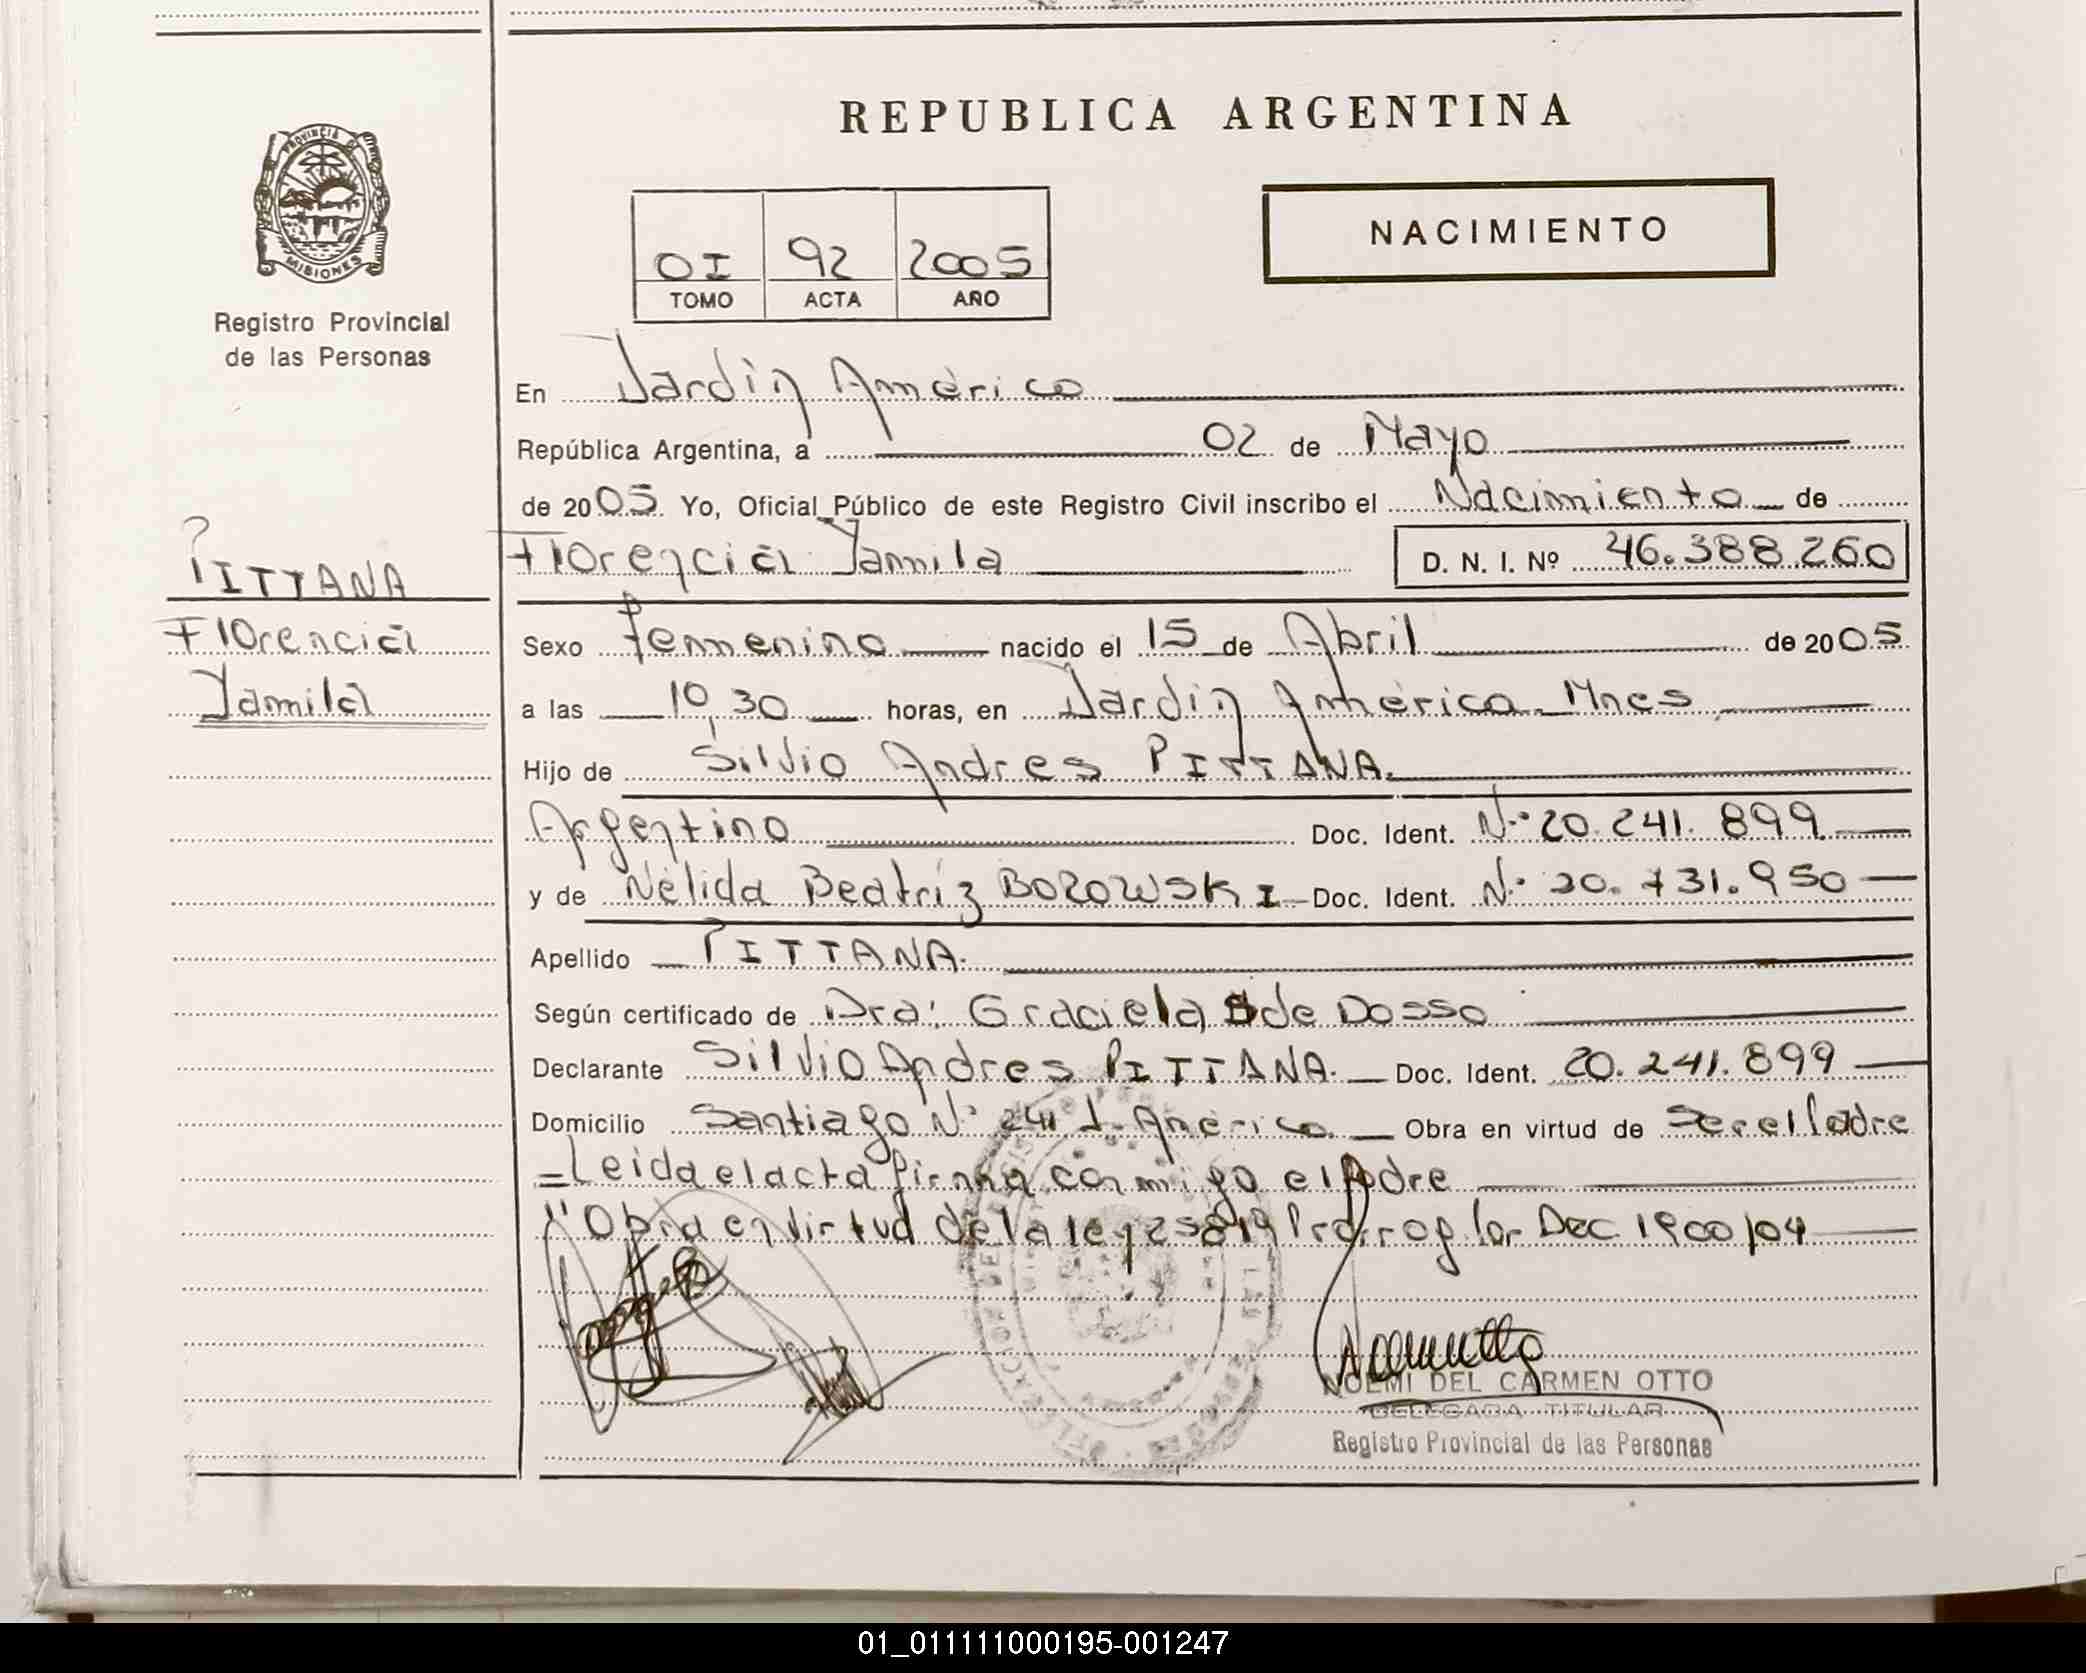 REPUBLICA ARGENTINA
PROVINCIA DE
MISIONES
Registro Provincial
de las Personas
OI 92 2005
TOMO ACTA AÑO
NACIMIENTO
En Jardin América
República Argentina, a 02 de Mayo
de 2005 Yo, Oficial Público de este Registro Civil inscribo el Nacimiento de
Florencia Yamila D. N. I. Nº 46.388.260
PITTANA
Florencia
Yamila
Sexo Femenino nacido el 15 de Abril de 2005
a las 10,30 horas, en Jardin América Mnes
Hijo de Silvio Andres PITTANA.
Argentino Doc. Ident. Nº 20.241.899
y de Nélida Beatriz BOROWSKI Doc. Ident. Nº 20.731.950
Apellido PITTANA.
Según certificado de Dra: Graciela S de Dosso
Declarante Silvio Andres PITTANA. Doc. Ident. 20.241.899
Domicilio Santiago Nº 241 J. América Obra en virtud de Ser el Padre
=Leida el acta firma conmigo el Padre
"Obra en virtud de la ley 25819 Prorrog por Dec 1900/04
NOEMI DEL CARMEN OTTO
DELEGADA TITULAR
Registro Provincial de las Personas
01_011111000195-001247